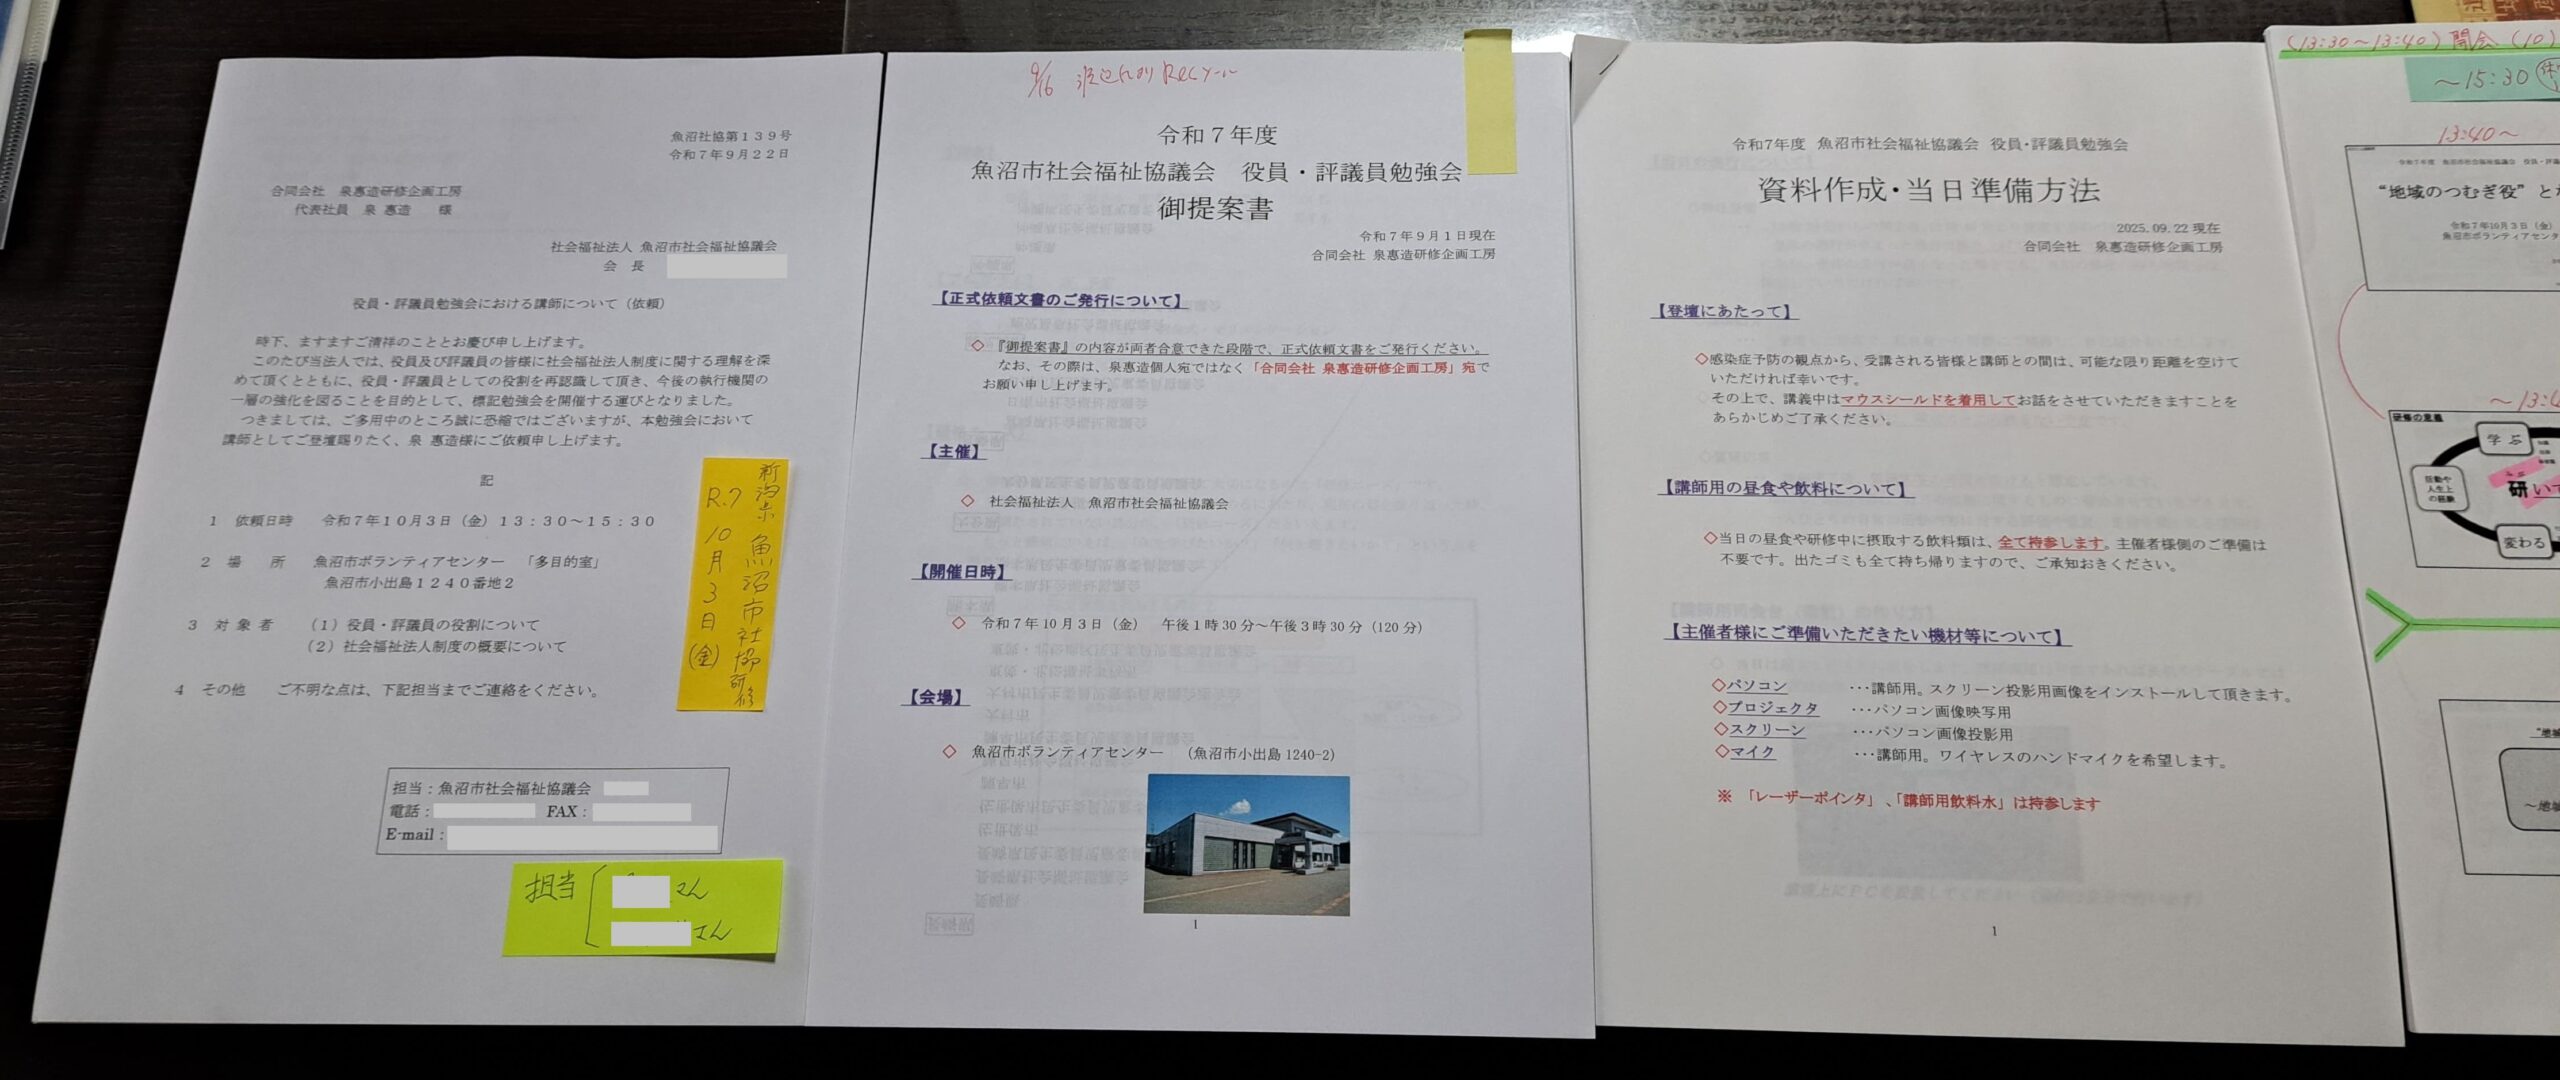 魚沼社協第139号
令和7年9月22日
合同会社 泉惠造研修企画工房
代表社員 泉 惠造 様
社会福祉法人 魚沼市社会福祉協議会
会 長
役員・評議員勉強会における講師について（依頼）
時下、ますますご清祥のこととお慶び申し上げます。
このたび当法人では、役員及び評議員の皆様に社会福祉法人制度に関する理解を深
めて頂くとともに、役員・評議員としての役割を再認識して頂き、今後の執行機関の
一層の強化を図ることを目的として、標記勉強会を開催する運びとなりました。
つきましては、ご多用中のところ誠に恐縮ではございますが、本勉強会において
講師としてご登壇賜りたく、泉 惠造様にご依頼申し上げます。
記
1 依頼日時 令和7年10月3日（金）13：30～15：30
2 場 所 魚沼市ボランティアセンター 「多目的室」
魚沼市小出島1240番地2
3 対象者 （1）役員・評議員の役割について
（2）社会福祉法人制度の概要について
4 その他 ご不明な点は、下記担当までご連絡をください。
新潟県 魚沼市社協研修
R.7 10月3日(金)
担当：魚沼市社会福祉協議会
電話： FAX：
E-mail：
担当 さん
さん
9/16
令和7年度
魚沼市社会福祉協議会 役員・評議員勉強会
御提案書
令和7年9月1日現在
合同会社 泉惠造研修企画工房
【正式依頼文書のご発行について】
◇ 『御提案書』の内容が両者合意できた段階で、正式依頼文書をご発行ください。
なお、その際は、泉惠造個人宛ではなく「合同会社 泉惠造研修企画工房」宛で
お願い申し上げます。
【主催】
◇ 社会福祉法人 魚沼市社会福祉協議会
【開催日時】
◇ 令和7年10月3日（金） 午後1時30分～午後3時30分（120分）
【会場】
◇ 魚沼市ボランティアセンター （魚沼市小出島1240-2）
1
令和7年度 魚沼市社会福祉協議会 役員・評議員勉強会
資料作成・当日準備方法
2025.09.22現在
合同会社 泉惠造研修企画工房
【登壇にあたって】
◇感染症予防の観点から、受講される皆様と講師との間は、可能な限り距離を空けて
いただければ幸いです。
その上で、講義中はマウスシールドを着用してお話をさせていただきますことを
あらかじめご了承ください。
【講師用の昼食や飲料について】
◇当日の昼食や研修中に摂取する飲料類は、全て持参します。主催者様側のご準備は
不要です。出たゴミも全て持ち帰りますので、ご承知おきください。
【主催者様にご準備いただきたい機材等について】
◇パソコン ･･･講師用。スクリーン投影用画像をインストールして頂きます。
◇プロジェクタ ･･･パソコン画像映写用
◇スクリーン ･･･パソコン画像投影用
◇マイク ･･･講師用。ワイヤレスのハンドマイクを希望します。
※ 「レーザーポインタ」、「講師用飲料水」は持参します
1
(13:30～13:40) 開会 (10)
～15:30
13:40～
令和7年度 魚沼市社会福祉協議会 役員・評議
“地域のつむぎ役” と
令和7年10月3日（金）
魚沼市ボランティアセンタ
～13:4
研修の意義
学ぶ
活動や
人生上
の経験
研
変わる